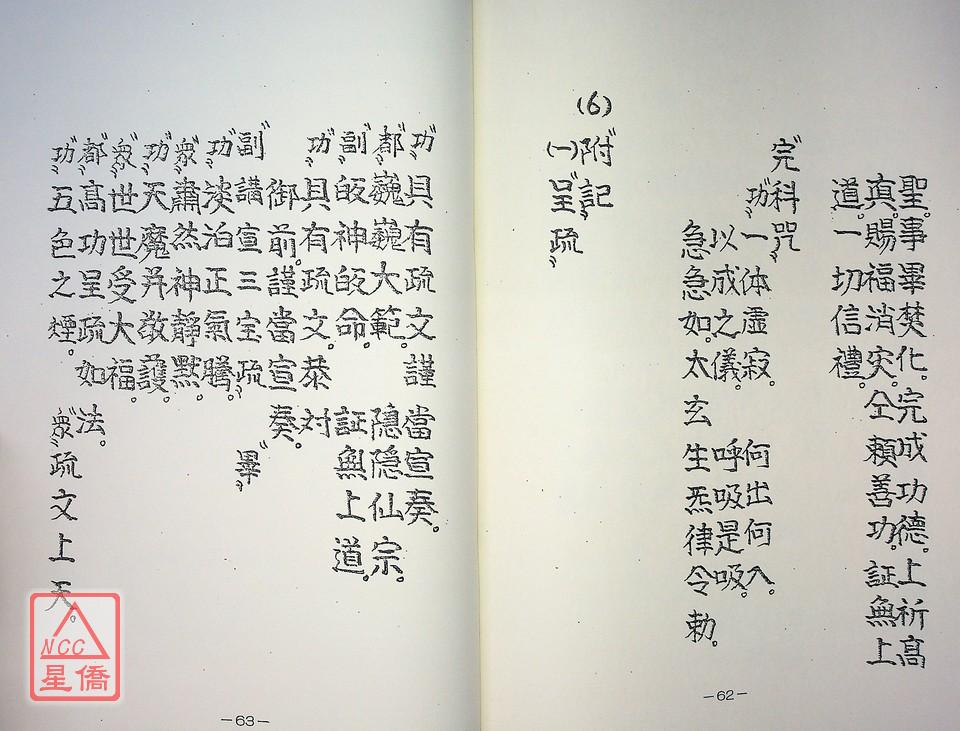 聖。事畢焚化。完成功德。上祈高
真。賜福消灾。仝賴善功。証無上
道。一切信禮。
〝完〞科咒
〝功〞一体虛寂。何出何入。
以成之儀。呼吸是吸。
急急如。太玄生炁律令勅。
(6)〝附〞記
(一)〝呈疏〞
—62—
〝功〞具有疏文。謹當宣奏。
〝都〞巍巍大範。隱隱仙宗。
〝副〞皈神皈命。証無上道。
〝功〞具有疏文。恭対
御前。謹當宣奏。
〝副〞講宣三宝疏〞〝畢〞
〝功〞淡泊正氣騰。
〝衆〞肅然神靜默。
〝功〞天魔幷敬護。
〝衆〞世世受大福。
〝都〞高功呈疏如法。
〝功〞五色之煙。〝衆〞疏文上天。
—63—
NCC
星僑